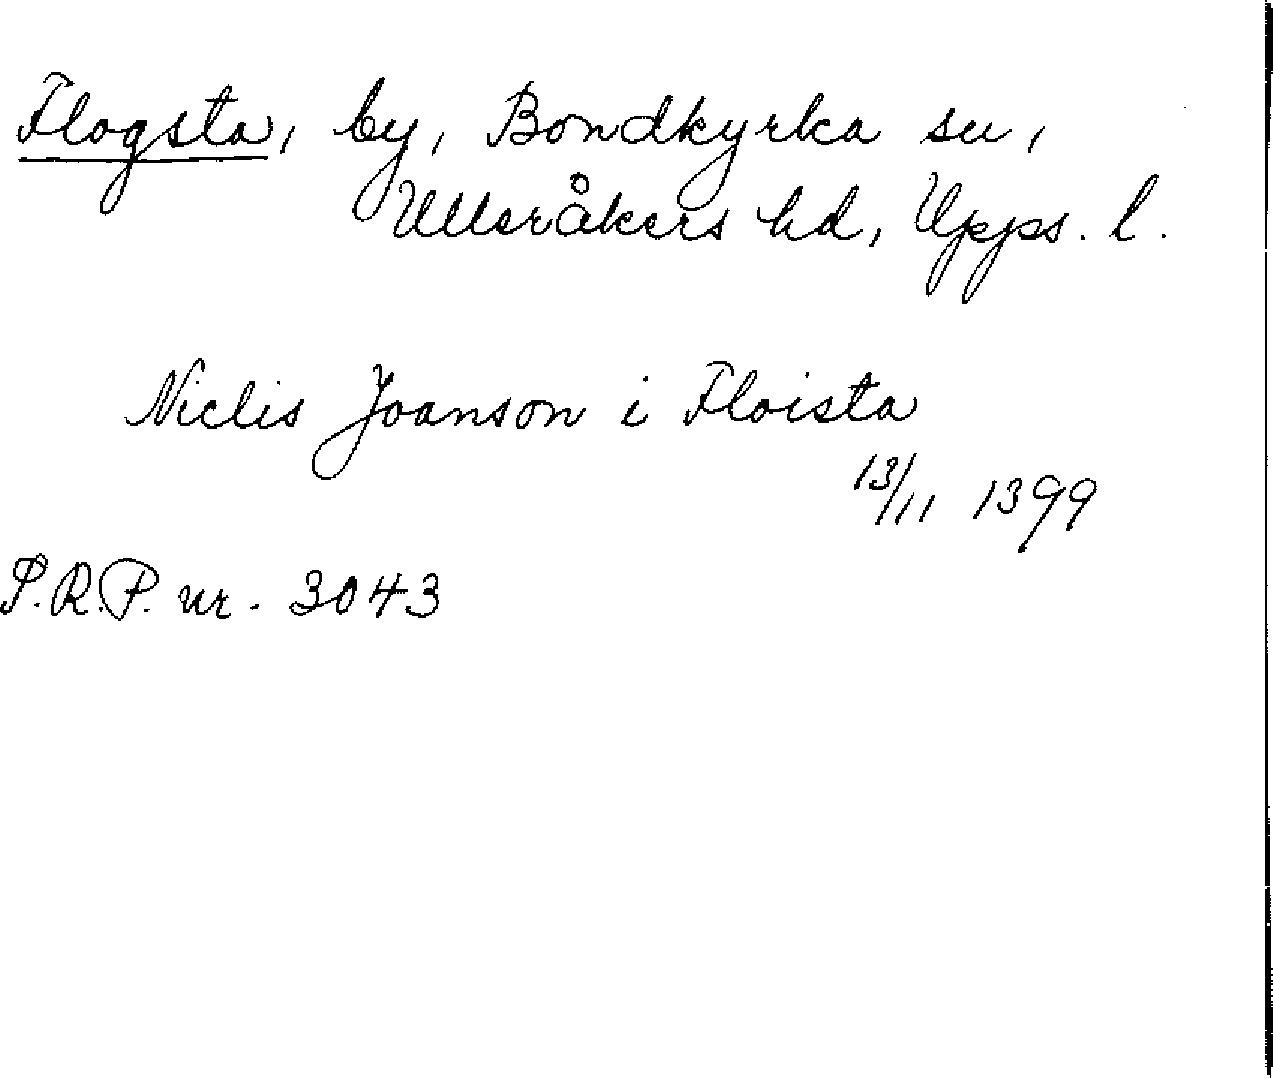 Flogsta, by, Bondkyrka sn,
Ulleråkers hd, Upps. l.
Niclis Joanson i Floista
13/11 1399
P.R.P. nr. 3043